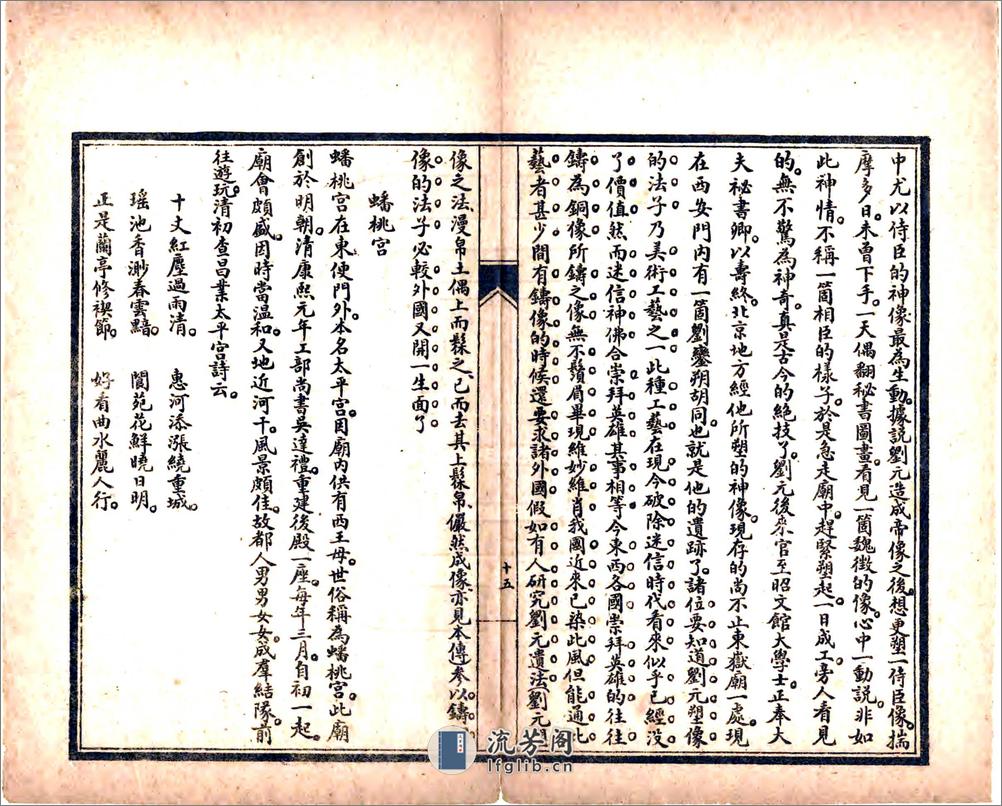 中尤以侍臣的神像最為生動。據說劉元造成帝像之後。想更塑一侍臣像。揣
摩多日。未曾下手。一天偶翻秘書圖畫。看見一箇魏徵的像。心中一動說。非如
此神情。不稱一箇相臣的樣子。於是急走廟中。趕緊塑起。一日成工。旁人看見
的。無不驚為神奇。真是古今的絕技了。劉元後來官至昭文館大學士正奉大
夫祕書卿。以壽終。北京地方經他所塑的神像。現存的尚不止東嶽廟一處。現
在西安門內有一箇劉鑾朔胡同。也就是他的遺跡了。諸位要知道劉元塑像
的法子。乃美術工藝之一。此種工藝在現今破除迷信時代看來。似乎已經沒
了價值。然而迷信神佛合崇拜英雄。其事相等。今東西各國崇拜英雄的。往往
鑄為銅像。所鑄之像。無不鬚眉畢現。維妙維肖。我國近來已染此風。但能通此
藝者甚少。間有鑄像的時候。還要求諸外國。假如有人研究劉元遺法。劉元塑
十五
像之法。漫帛土偶上而髹之。已而去其土髹帛。儼然成像。亦見本傳。參以鑄
像的法子。必較外國又開一生面了。
蟠桃宮
蟠桃宮在東便門外。本名太平宮。因廟內供有西王母。世俗稱為蟠桃宮。此廟
創於明朝。清康熙元年工部尚書吳達禮重建後殿一座。每年三月。自初一起。
廟會頗盛。因時當溫和。又地近河干。風景頗佳。故都人男男女女。成羣結隊。前
往遊玩。清初查昌業太平宮詩云。
十丈紅塵過雨清。　惠河添漲繞重城。
瑤池香渺春雲黯。　閬苑花鮮曉日明。
正是蘭亭修禊節。　好看曲水麗人行。
流芳阁
lfglib.cn